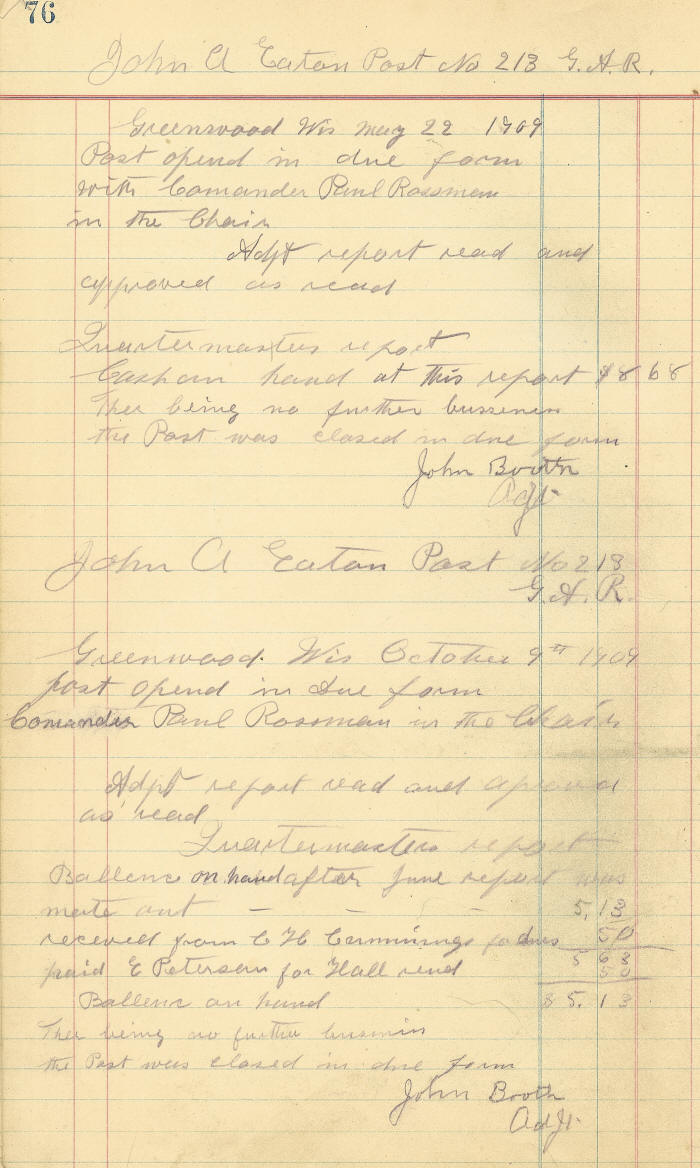 76
John A Eaton Post No 213 G.A.R.
Greenwood Wis may 22 1909
Post opend in due form
with Comander Paul Rossman
in the Chair
Adjt report read and
approved as read
Quartermasters report
Cash on hand at this report $8 68
Ther being no further bussiness
the Post was closed in due form
John Booth
Adjt
John A Eaton Post No 213
G.A.R.
Greenwood. Wis October 9th 1909
post opend in due form
Comander Paul Rossman in the Chair
Adjt report read and aproved
as read
Quartermasters report
Ballenc on hand after June report was
mate out - - - 5,13
receved from C H Cummings for dues 50
5 63
paid E Peterson for Hall rend 50
Ballenc on hand $5.13
Ther being no further business
the Post was closed in due form
John Booth
Adjt.